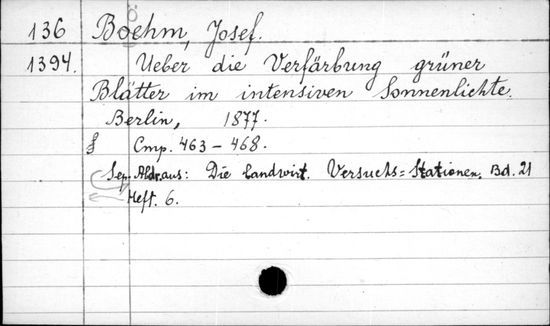 136 Boehm, Josef.
1394. Ueber die Verfärbung grüner
Blätter im intensiven Sonnenlichte.
Berlin, 1877.
Стр. 463-468.
Sep. Abdr. aus: Die landwirt. Versuchs=Stationen. Bd. 21
Heft. 6.